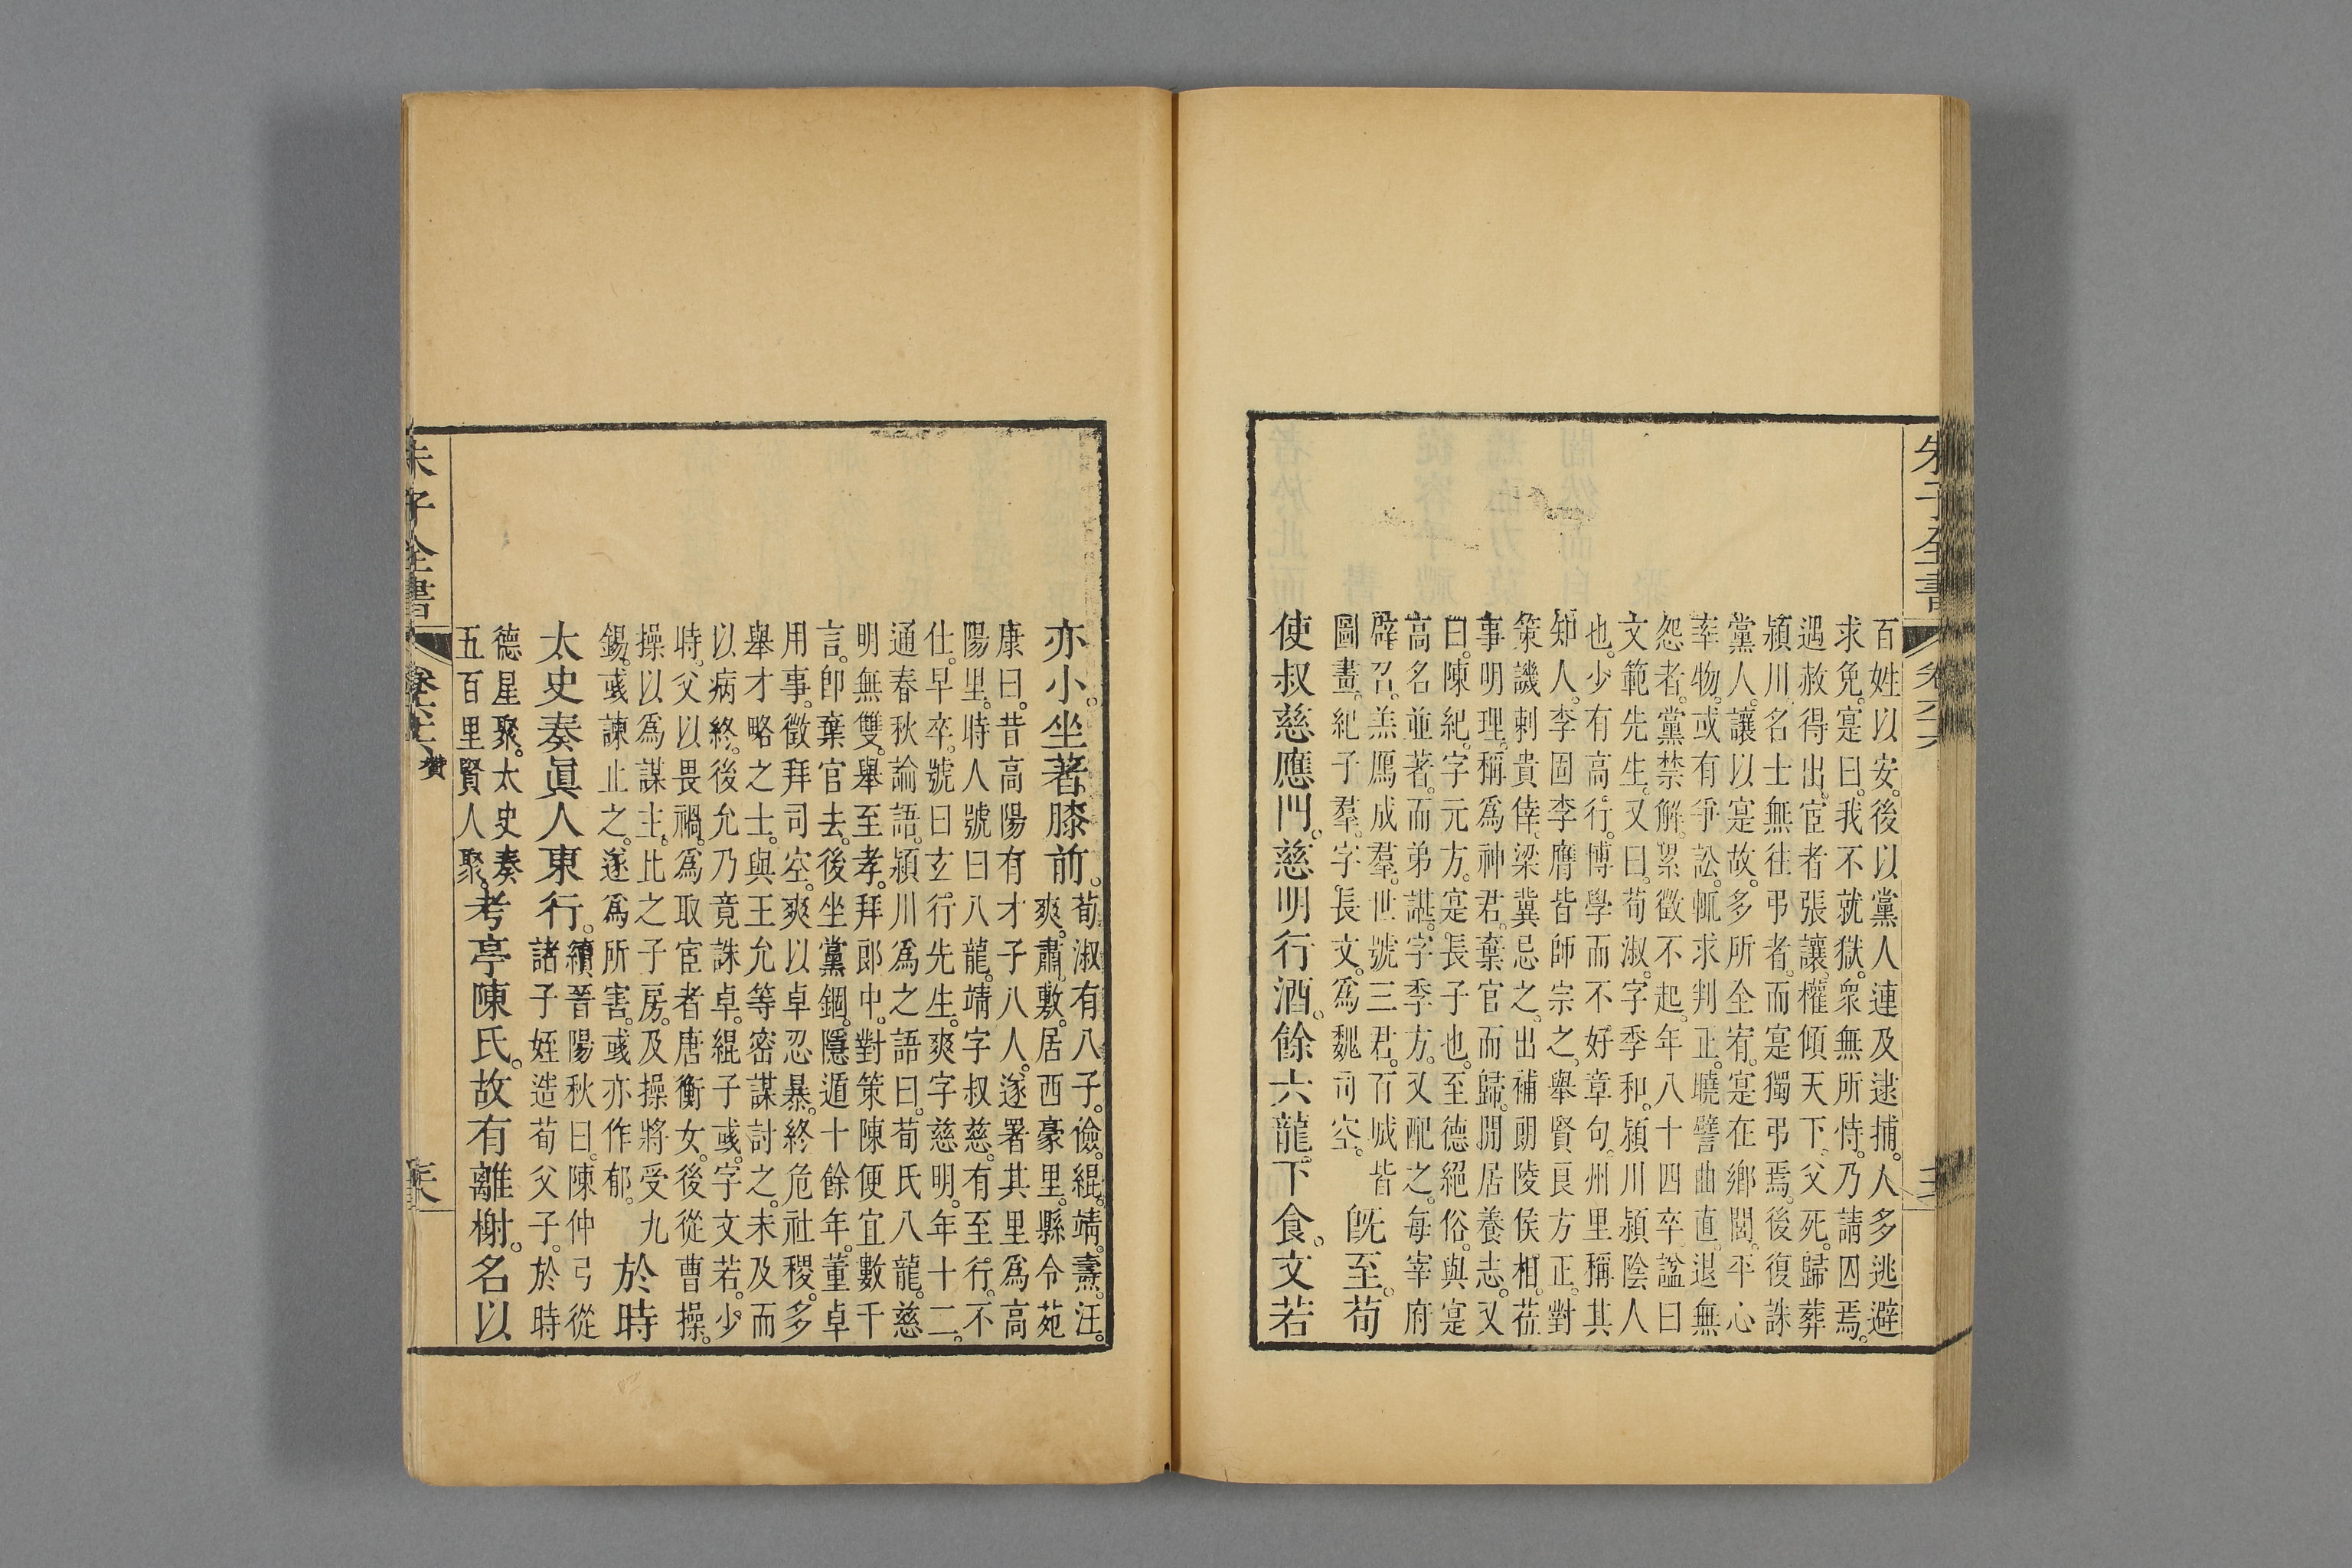 朱子全書
百姓以安。後以黨人連及逮捕。人多逃避
求免。寔曰。我不就獄。衆無所恃。乃請囚焉。
遇赦得出。宦者張讓。權傾天下。父死。歸葬
潁川。名士無往弔者。而寔獨弔焉。後復誅
黨人。讓以寔故。多所全宥。寔在鄉閭。平心
率物。或有爭訟。輒求判正。曉譬曲直。退無
怨者。黨禁解。累徵不起。年八十四卒。諡曰
文範先生。又曰。荀淑。字季和。潁川潁陰人
也。少有高行。博學而不好章句。州里稱其
知人。李固李膺皆師宗之。舉賢良方正。對
策譏刺貴倖。梁冀忌之。出補朗陵侯相。莅
事明理。稱爲神君。棄官而歸。閒居養志。又
曰。陳紀。字元方。寔長子也。至德絕俗。與寔
高名並著。而弟諶。字季方。又配之。每宰府
辟召。羔鴈成羣。世號三君。百城皆
圖畫。紀子羣。字長文。爲魏司空。
旣至。荀
使叔慈應門。慈明行酒。餘六龍下食。文若
亦小。坐著膝前。
荀淑有八子。儉。緄。靖。燾。汪。
爽。肅。敷。居西豪里。縣令苑
康曰。昔高陽有才子八人。遂署其里爲高
陽里。時人號曰八龍。靖字叔慈。有至行。不
仕。早卒。號曰玄行先生。爽字慈明。年十二。
通春秋論語。潁川爲之語曰。荀氏八龍。慈
明無雙。舉至孝。拜郎中。對策陳便宜數千
言。卽棄官去。後坐黨錮。隱遁十餘年。董卓
用事。徵拜司空。爽以卓忍暴。終危社稷。多
舉才略之士。與王允等密謀討之。未及而
以病終。後允乃竟誅卓。緄子彧。字文若。少
時。父以畏禍。爲取宦者唐衡女。後從曹操。
操以爲謀主。比之子房。及操將受九
錫。彧諫止之。遂爲所害。彧亦作郁。
於時
太史奏眞人東行。
續晉陽秋曰。陳仲弓從
諸子姪造荀父子。於時
德星聚。太史奏
五百里賢人聚。
考亭陳氏。故有離榭。名以
朱子全書